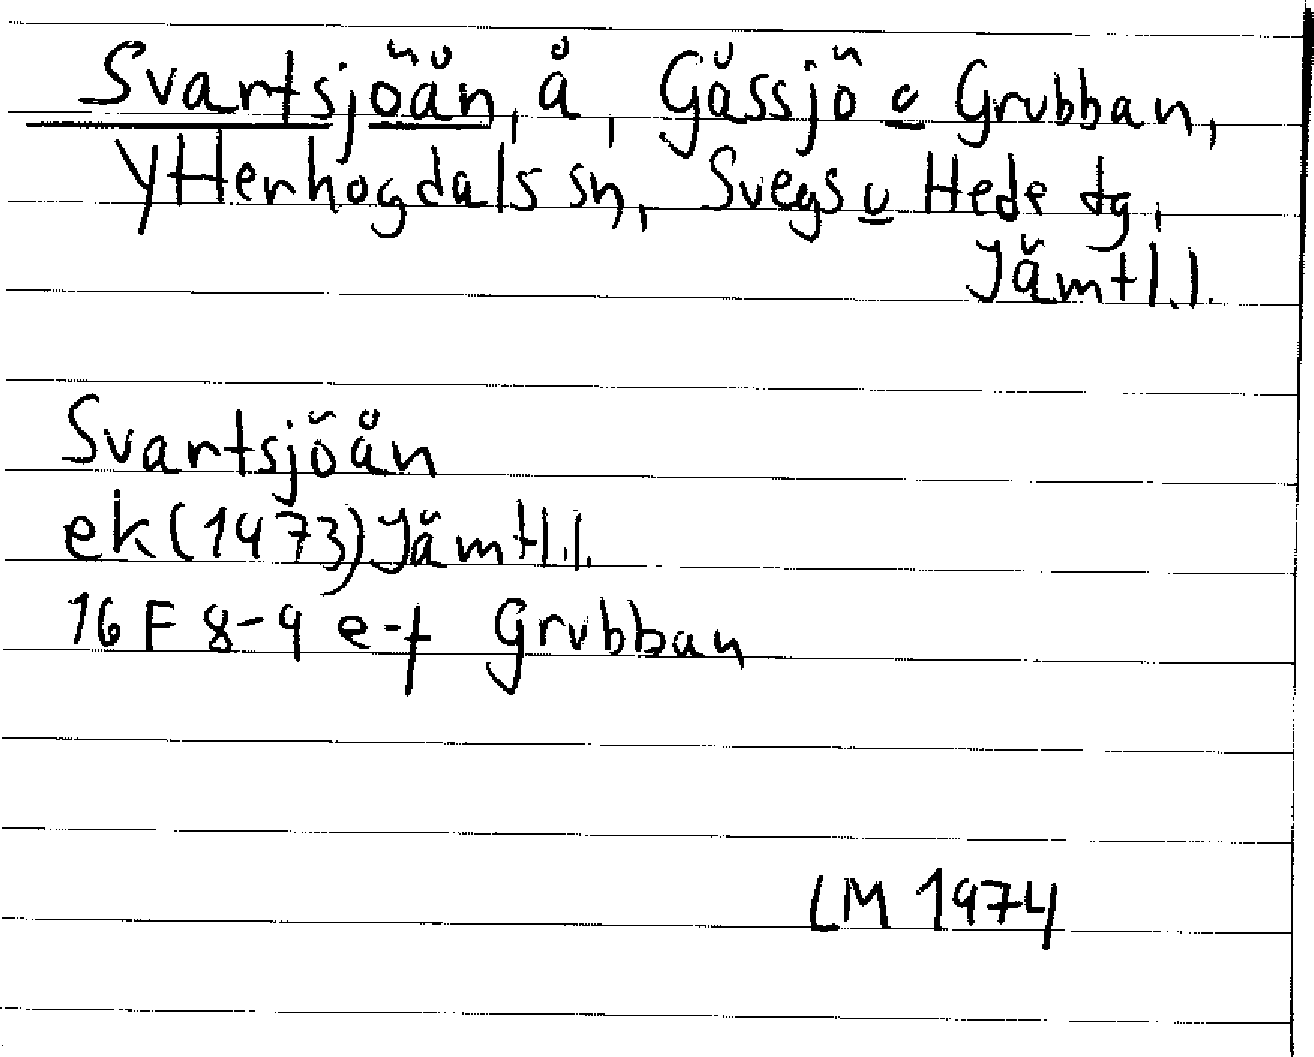 Svartsjöån, å, Gåssjö o Grubban,
Ytterhogdals sn, Svegs o Hede tg,
Jämtl.l.
Svartsjöån
ek (1973) Jämtl.l.
16 F 8-9 e-f Grubban
LM 1974